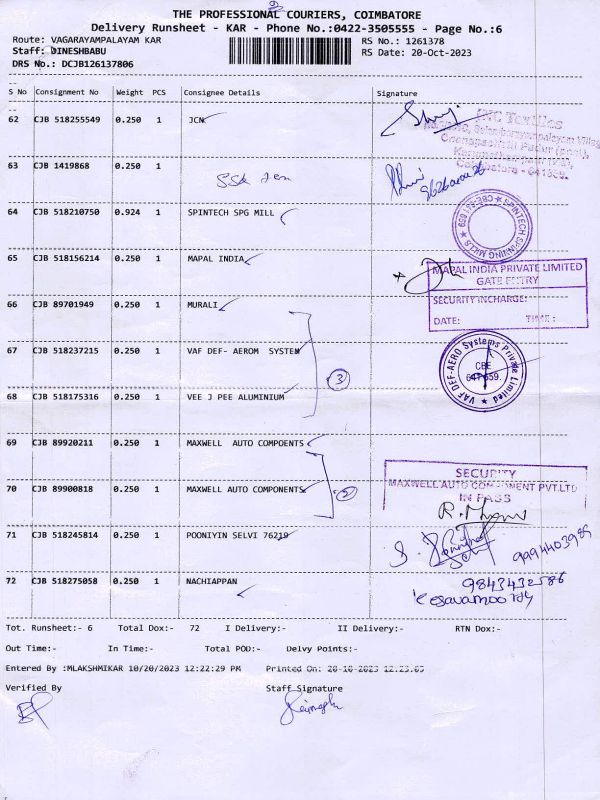 THE PROFESSIONAL COURIERS, COIMBATORE
Delivery Runsheet - KAR - Phone No.:0422-3505555 - Page No.:6
Route: VAGARAYAMPALAYAM KAR RS No.: 1261378
Staff: DINESHBABU RS Date: 20-Oct-2023
DRS No.: DCJB126137806
S No Consignment No Weight PCS Consignee Details Signature
62 CJB 518255549 0.250 1 JCN
JNC Textiles
63 CJB 1419868 0.250 1
64 CJB 518210750 0.924 1 SPINTECH SPG MILL
SPINTECH SPINNING MILLS
65 CJB 518156214 0.250 1 MAPAL INDIA
MAPAL INDIA PRIVATE LIMITED
GATE ENTRY
SECURITY INCHARGE:
DATE: TIME:
66 CJB 89701949 0.250 1 MURALI
67 CJB 518237215 0.250 1 VAF DEF- AEROM SYSTEM
VAF DEF-AERO Systems Private Limited
CBE
641 659.
3
68 CJB 518175316 0.250 1 VEE J PEE ALUMINIUM
69 CJB 89920211 0.250 1 MAXWELL AUTO COMPOENTS
SECURITY
MAXWELL AUTO COMPONENT PVT.LTD
IN PASS
70 CJB 89900818 0.250 1 MAXWELL AUTO COMPONENTS
2
71 CJB 518245814 0.250 1 POONIYIN SELVI 76219
9994403985
72 CJB 518275058 0.250 1 NACHIAPPAN
9843432586
Tot. Runsheet:- 6 Total Dox:- 72 I Delivery:- II Delivery:- RTN Dox:-
Out Time:- In Time:- Total POD:- Delvy Points:-
Entered By :MLAKSHMIKAR 10/20/2023 12:22:29 PM Printed On: 20-10-2023 12.23.05
Verified By Staff Signature